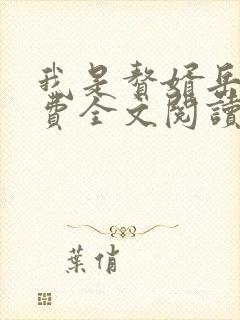 我是贅婿岳
費全文閱讀
葉俏